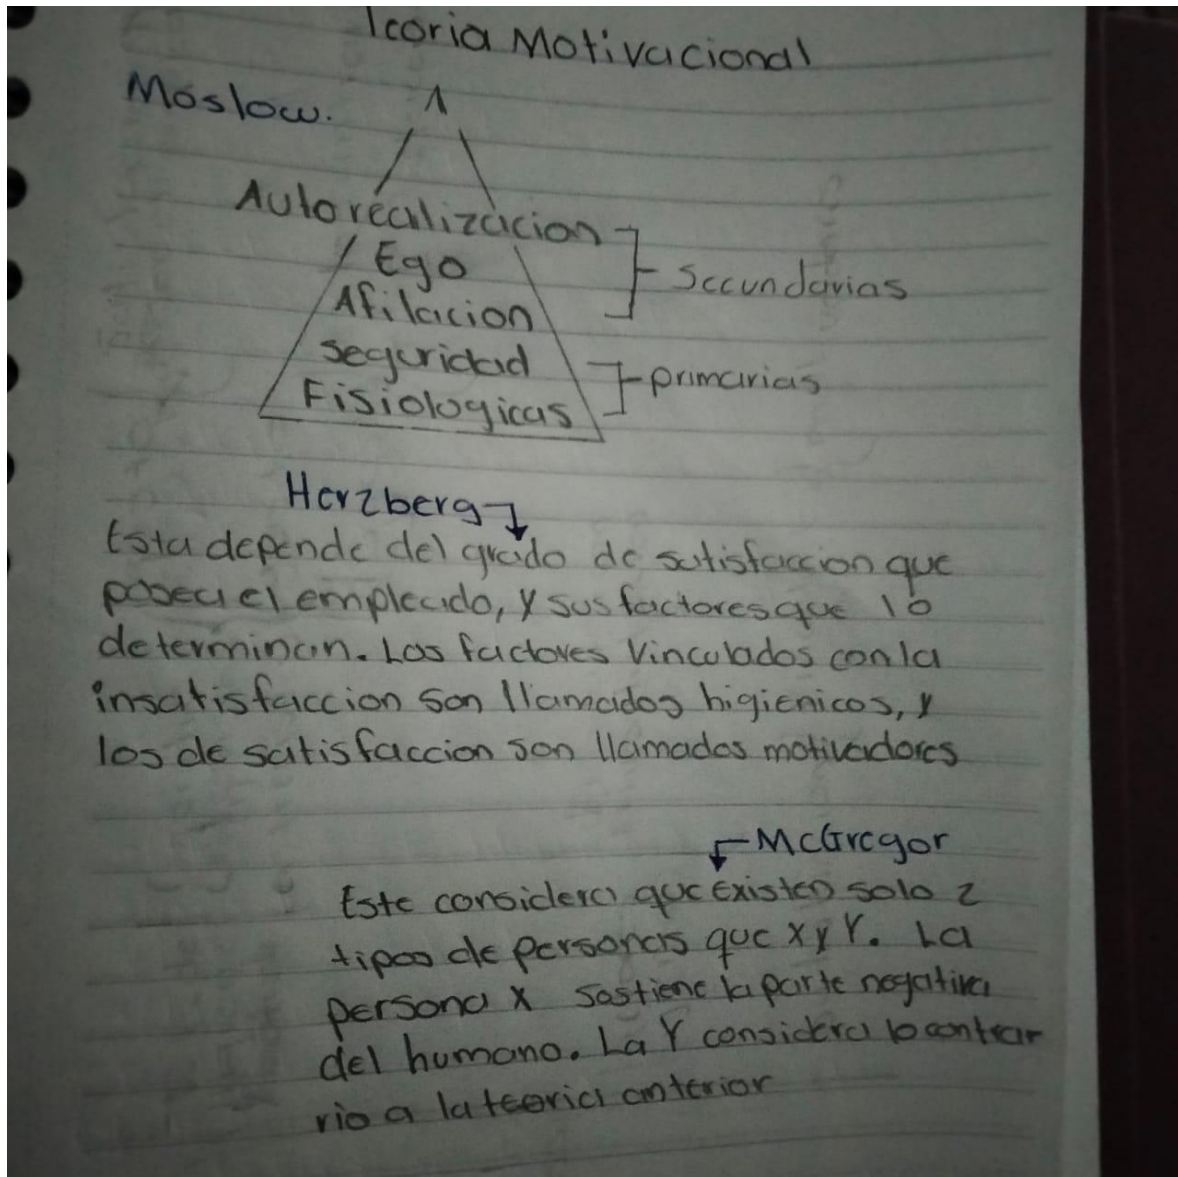 Teoria Motivacional
Moslow.
Autorealizacion
Ego
Afilacion
Secundarias
seguridad
primarias
Fisiologicas
Herzberg
Esta depende del grado de satisfaccion que
posea el empleado, y sus factores que lo
determinan. Los factores vinculados con la
insatisfaccion son llamados higienicos, y
los de satisfaccion son llamados motivadores
McGregor
Este considera que existen solo 2
tipos de personas que X y Y. La
persona X sostiene la parte negativa
del humano. La Y considera lo contrar
rio a la teoria anterior